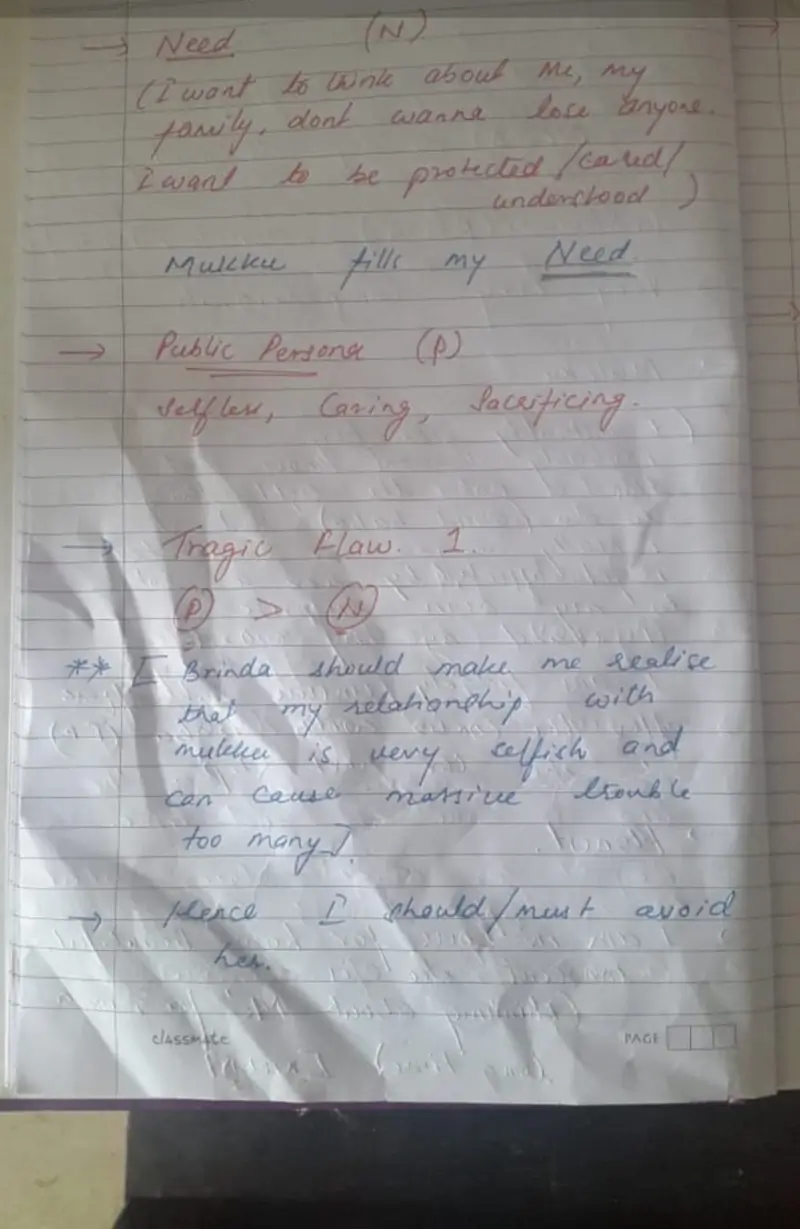 → Need (N)
(I want to think about me, my
family, dont wanna lose anyone.
I want to be protected/cared/
understood)
Mukku fills my Need
→ Public Persona (P)
Selfless, Caring, Sacrificing.
→ Tragic Flaw. 1.
P > N
** [ Brinda should make me realise
that my relationship with
mukku is very selfish and
can cause massive trouble
too many].
→ Hence I should/must avoid
her.
classmate PAGE